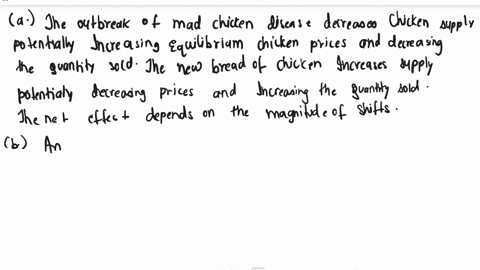 (a.) The outbreak of mad chicken disease decreases Chicken supply
potentially Increasing Equilibrium chicken prices and decreasing
the quantity sold. The new bread of chicken Increases supply
potentialy decreasing prices and Increasing the quantity sold.
The net effect depends on the magnitude of shifts.
(b) An